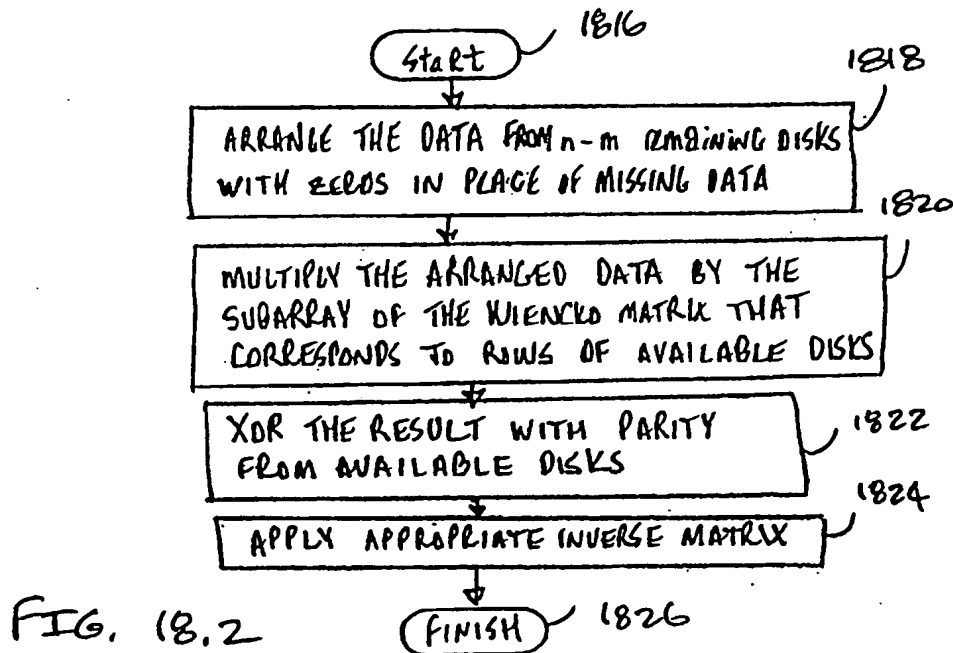 1816
Start
1818
ARRANGE THE DATA FROM n-m REMAINING DISKS
WITH ZEROS IN PLACE OF MISSING DATA
1820
MULTIPLY THE ARRANGED DATA BY THE
SUBARRAY OF THE WIENCKO MATRIX THAT
CORRESPONDS TO ROWS OF AVAILABLE DISKS
XOR THE RESULT WITH PARITY
FROM AVAILABLE DISKS
1822
1824
APPLY APPROPRIATE INVERSE MATRIX
FIG. 18.2
FINISH
1826